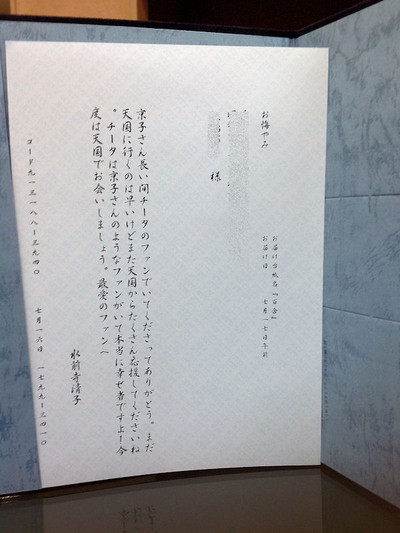 お悔やみ
様
お届け台紙名『百合』
お届け日 七月一七日午前
京子さん長い間チータのファンでいてくださってありがとう。まだ
天国に行くのは早いけどまた天国からたくさん応援してくださいね
。チータは京子さんのようなファンがいて本当に幸せ者ですよ!今
度は天国でお会いしましょう。最愛のファンへ
水前寺清子
七月一六日 一七九九ー三四一〇
コード九一三一八八ー三九四〇